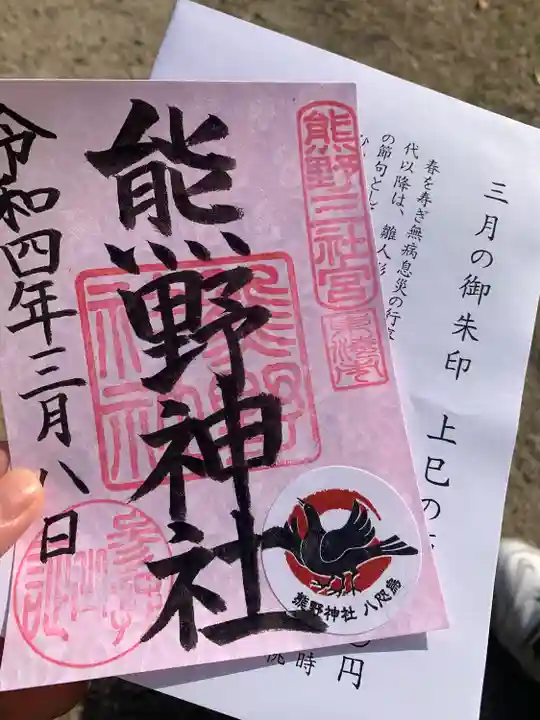 三月の御朱印
上巳の
春を寿ぎ無病息災の行
代以降は、雛人形
の節句とし
円
時
熊野三社宮
熊野神社
令和四年三月八日
熊野神社 八咫烏